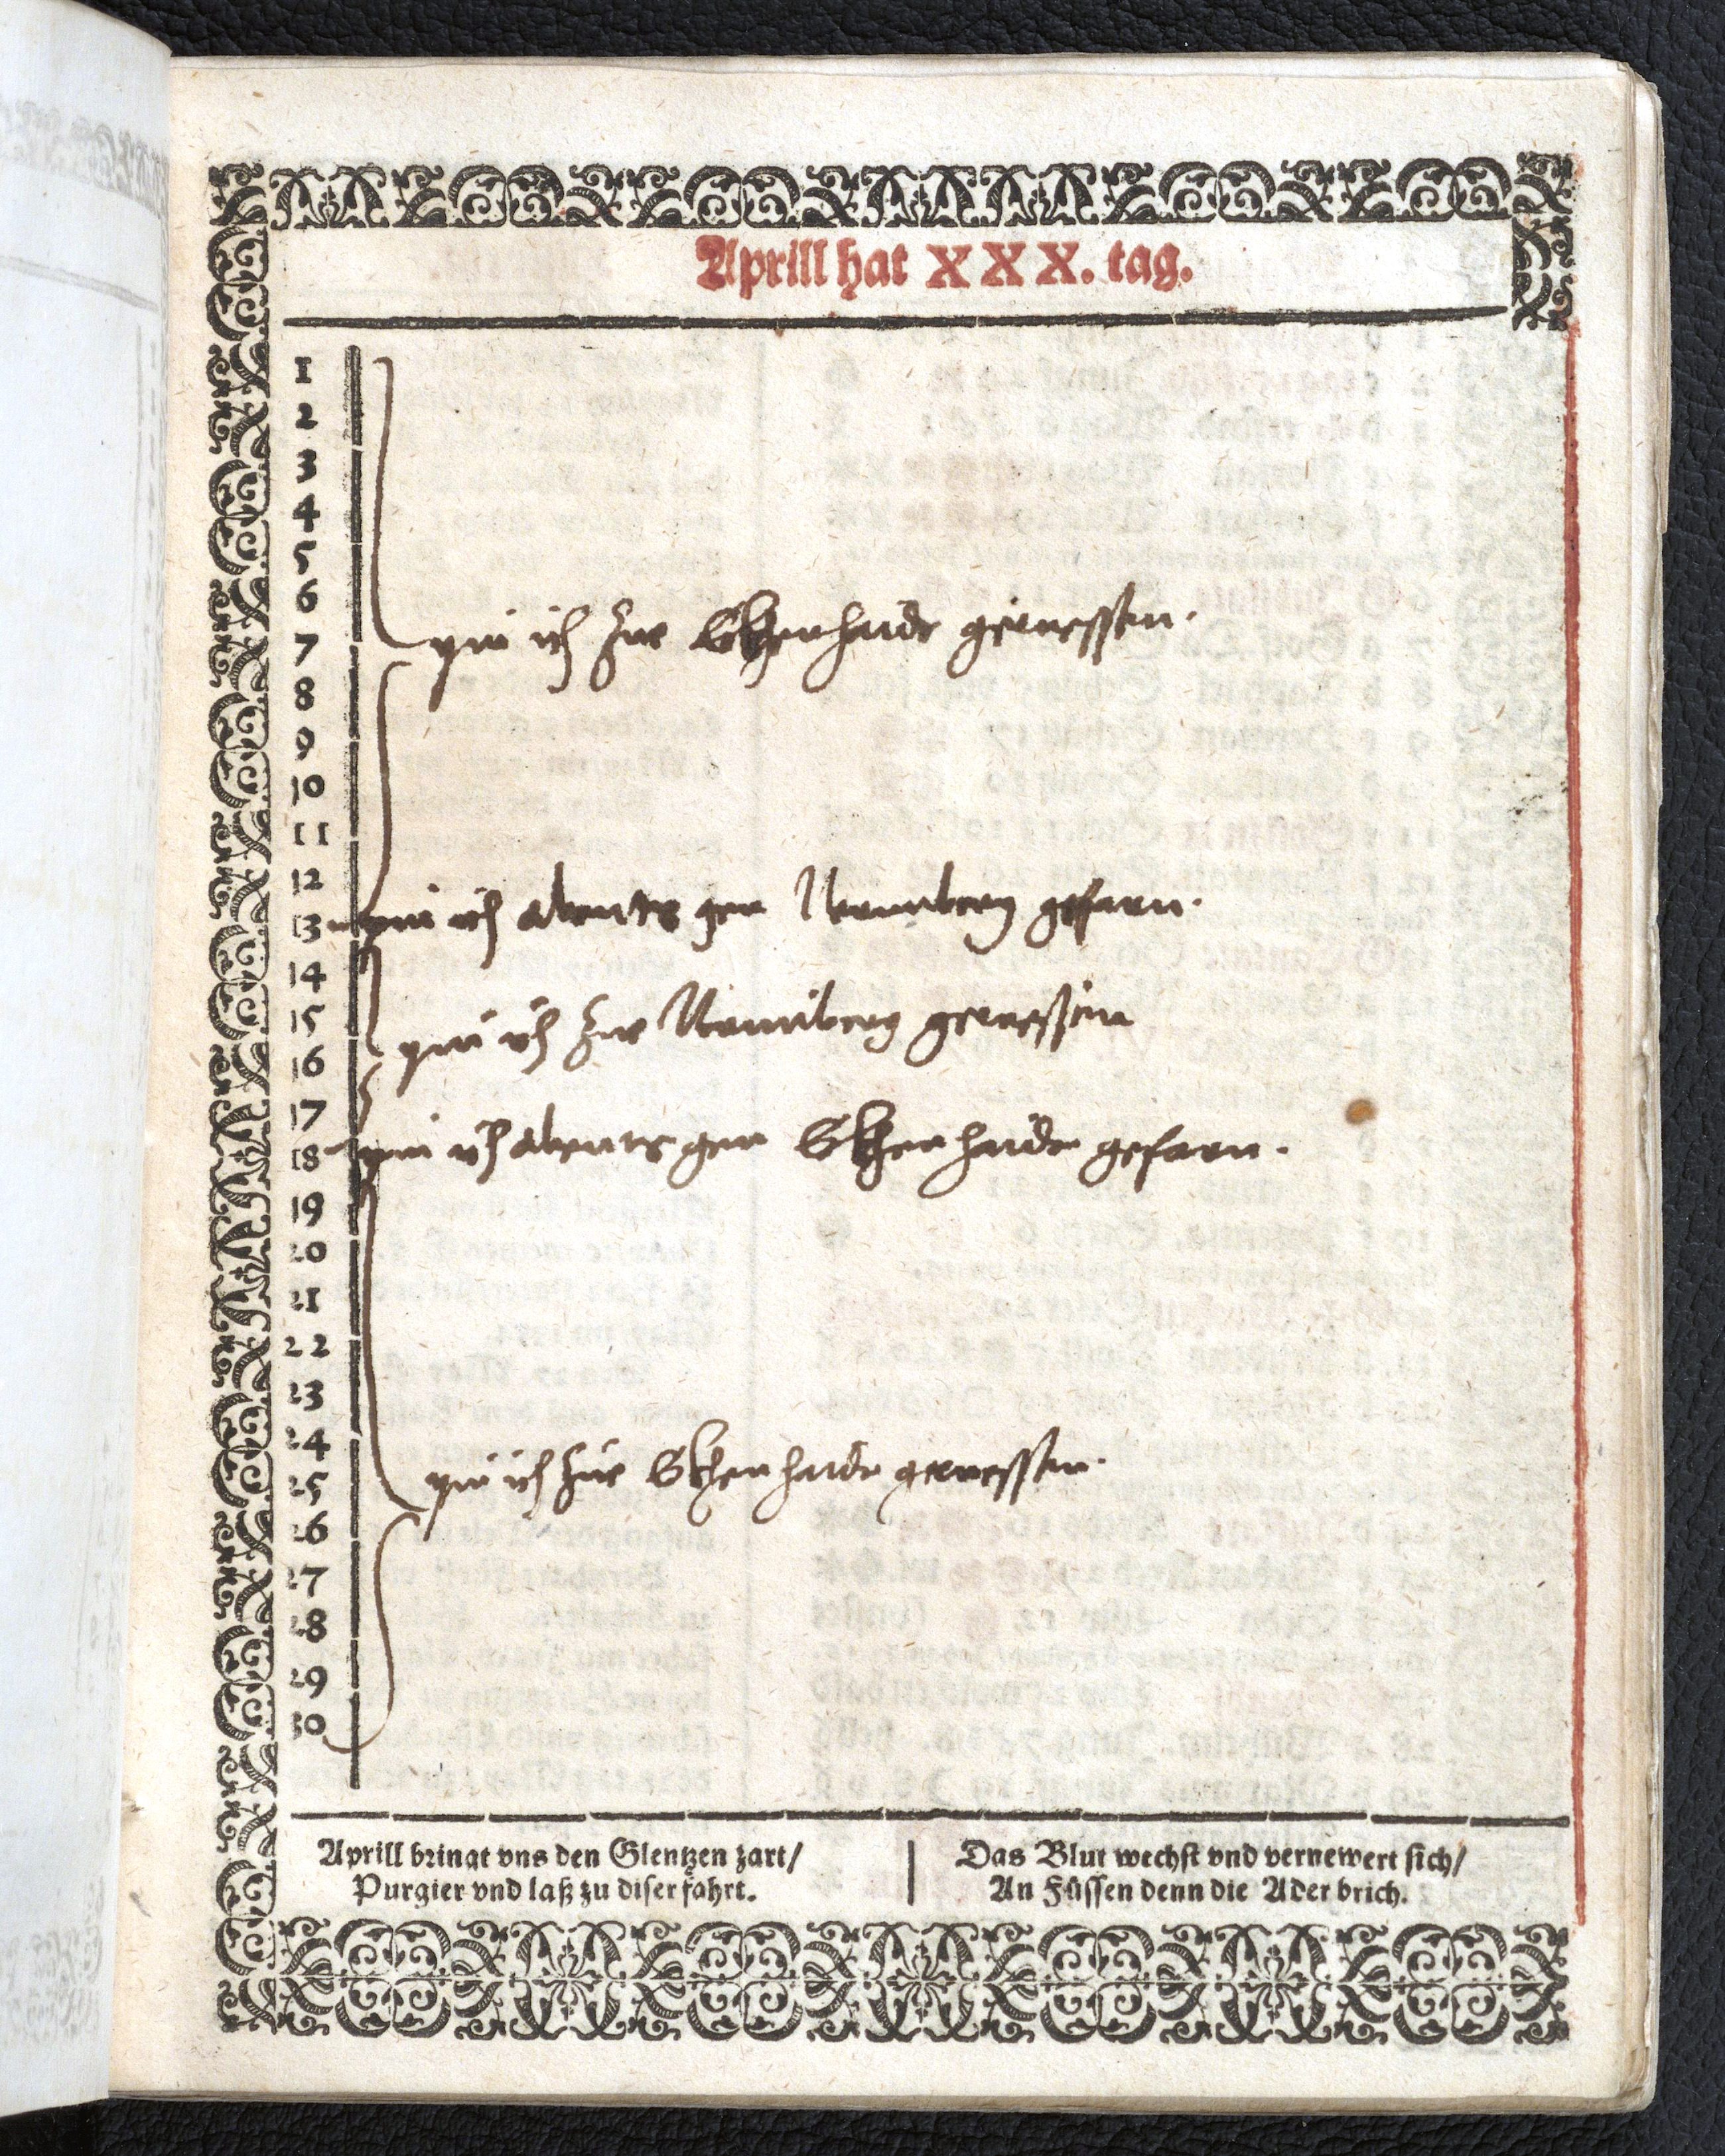 Aprill hat XXX. tag.
1
2
3
4
5
6
7 pin ich zue Gkzenhaide gewessen.
8
9
10
11
12
13 pin ich abents gen Nurmberg gefarn.
14
15 pin ich zue Nurmberg gewessen
16
17
18 pin ich abents gen Gkzenhaide gefarn.
19
20
21
22
23
24
25 pin ich zue Gkzenhaide gewessen.
26
27
28
29
30
Aprill bringt vns den Glentzen zart/
Purgier vnd laß zu diser fahrt.
Das Blut wechst vnd vernewert sich/
An Füssen denn die Ader brich.